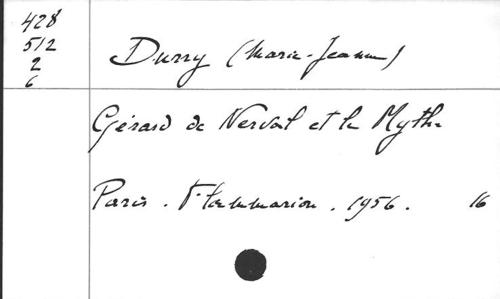 428
512
2
6
Durry (Marie-Jeanne)
Gérard de Nerval et le Mythe
Paris. Flammarion. 1956. 16